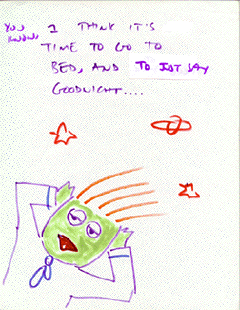 YOU KNOW, I THINK IT'S
TIME TO GO TO
BED, AND TO JUST SAY
GOODNIGHT....